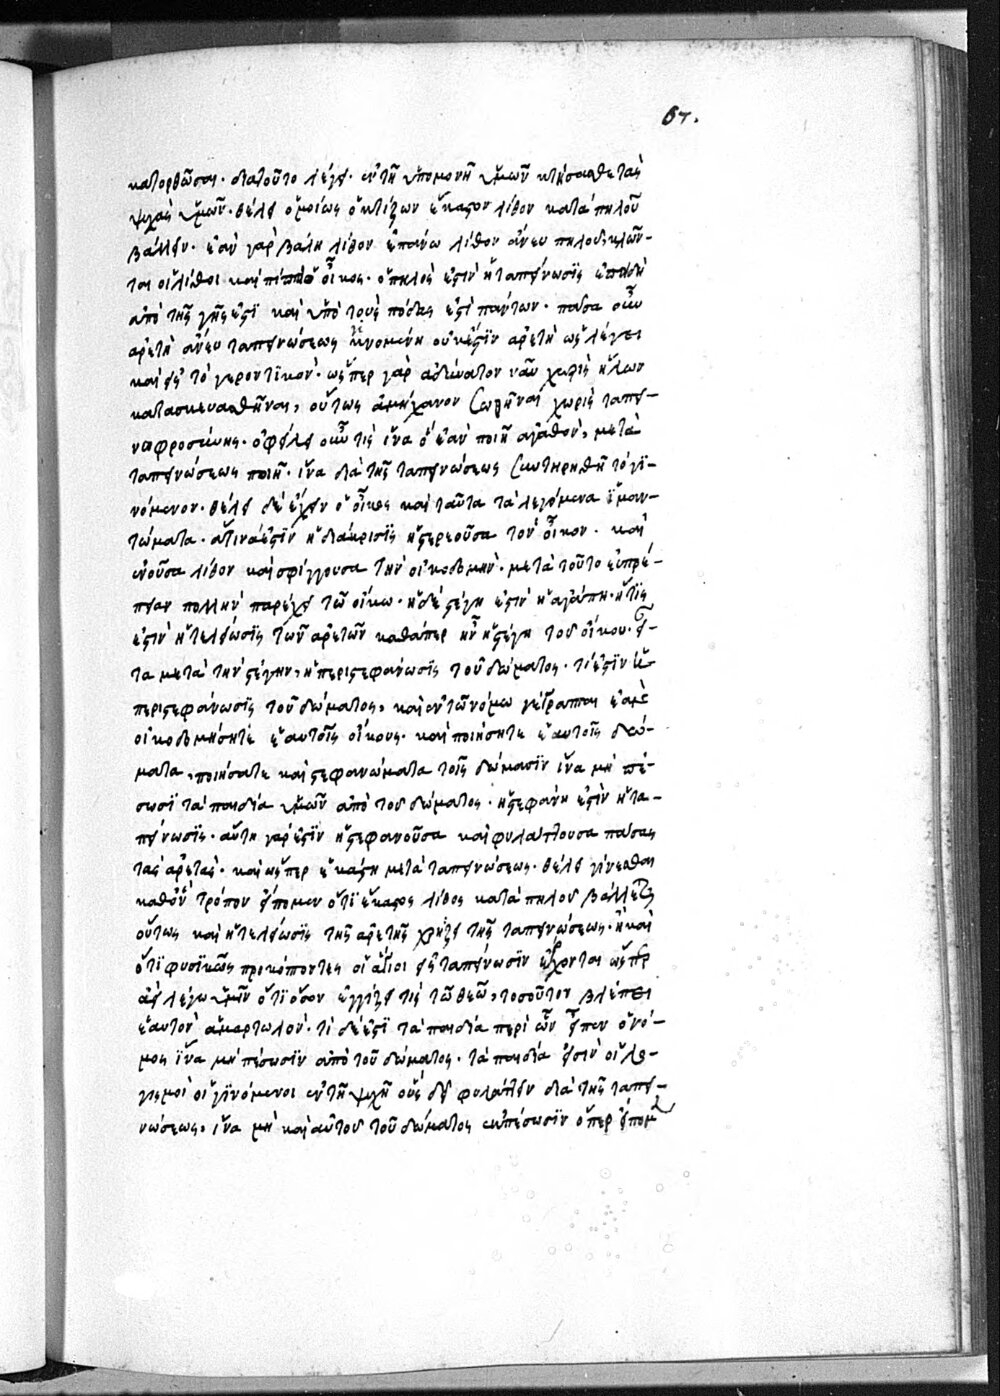 67.
κατορθῶσαι. διατοῦτο λέγει. ἐν τῆ ὑπομονῆ ὑμῶν κτήσασθε τὰς
ψυχὰς ὑμῶν. θέλει ὁμοίως ὁ κτίζων ἕκαστον λίθον κατὰ πηλοῦ
βάλλειν. ἐὰν γὰρ βάλη λίθον ἐπάνω λίθον ἄνευ πηλοῦ, κλῶν-
ται οἱ λίθοι καὶ πίπτει ὁ οἶκος. ὁ πηλὸς ἐστὶν ἡ ταπείνωσϊς ἐπειδὴ
ἀπὸ τῆς γῆς ἐστϊ καὶ ὑπὸ τοὺς πόδας ἐστὶ πάντων. πᾶσα οὖν
ἀρετὴ ἄνευ ταπεινώσεως γινομένη οὐκ ἔστϊν ἀρετὴ ὡς λέγει
καὶ εἰς τὸ γεροντϊκόν. ὥσπερ γὰρ ἀδύνατον ναῦν χωρὶς ἥλων
κατασκευασθῆναι, οὕτως ἀμήχανον σωθῆναι χωρὶς ταπει-
νοφροσύνης. ὀφείλει οὖν τὶς ἵνα ὃ ἐὰν ποιῆ ἀγαθὸν, μετὰ
ταπεινώσεως ποιῆ. ἵνα διὰ τῆς ταπεινώσεως συντηρηθῆ τὸ γϊ-
νόμενον. θέλει δὲ ἔχειν ὁ οἶκος καὶ ταῦτα τὰ λεγόμενα ϊμαν-
τώματα. ἅτινα ἐστϊν ἡ διάκρισϊς ἡ στερεοῦσα τὸν οἶκον. καὶ
ἑνοῦσα λίθον καὶ σφίγγουσα τὴν οἰκοδομήν. μετὰ τοῦτο εὐπρέ-
πειαν πολλὴν παρέχει τῶ οἴκω. ἡ δὲ στέγη ἐστὶν ἡ ἀγάπη. ἥτϊς
ἐστὶν ἡ τελείωσϊς τῶν ἀρετῶν καθάπερ ἦν ἡ στέγη τοῦ οἴκου. εἶ-
τα μετὰ τὴν στέγην, ἡ περιστεφάνωσϊς τοῦ δώματος. τί ἐστϊν ἡ
περιστεφάνωσϊς τοῦ δώματος, καὶ ἐν τῶ νόμω γέγραπται ἐὰν
οἰκοδομήσητε ἑαυτοῖς οἴκους. καὶ ποιήσητε ἑαυτοῖς δώ-
ματα, ποιήσατε καὶ στεφανώματα τοῖς δώμασϊν ἵνα μὴ πέ-
σωσϊ τὰ παιδία ὑμῶν ἀπὸ τοῦ δώματος. ἡ στεφάνη ἐστὶν ἡ τα-
πείνωσϊς. αὕτη γάρ ἐστϊν ἡ στεφανοῦσα καὶ φυλάττουσα πάσας
τὰς ἀρετάς. καὶ ὥσπερ ἑκάστη μετὰ ταπεινώσεως. θέλει γίνεσθαι
καθ' ὃν τρόπον εἴπομεν ὅτϊ ἕκαστος λίθος κατὰ πηλοῦ βάλλεται
οὕτως καὶ ἡ τελείωσϊς τῆς ἀρετῆς χρήζει τῆς ταπεινώσεως. καὶ
ὅτϊ φυσϊκῶς προκόπτοντες οἱ ἅγιοι εἰς ταπείνωσϊν ἔρχονται ὥσπερ
ἀεὶ λέγω ὑμῖν ὅτϊ ὅσον ἐγγίζει τὶς τῶ θεῶ, τοσοῦτον βλέπει
ἑαυτὸν ἁμαρτωλόν. τί δέ ἐστϊ τὰ παιδία περὶ ὧν εἶπεν ὁ νό-
μος ἵνα μὴ πέσωσϊν ἀπὸ τοῦ δώματος. τὰ παιδία εἰσὶν οἱ λο-
γισμοὶ οἱ γϊνόμενοι ἐν τῆ ψυχῆ οὓς δεῖ φυλάττειν διὰ τῆς ταπει-
νώσεως. ἵνα μὴ καὶ αὐτοὶ τοῦ δώματος ἐκπέσωσϊν ὅπερ εἴπομεν